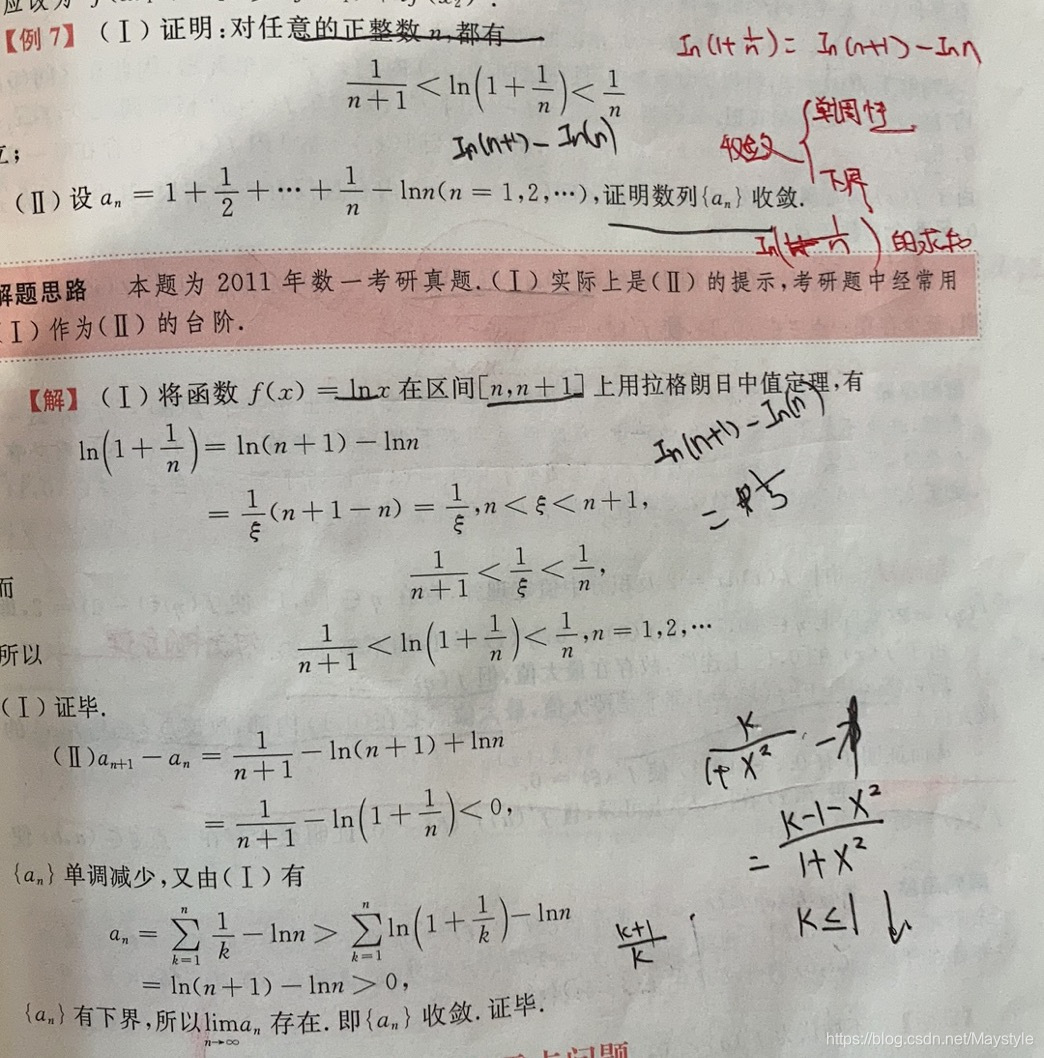 【例 7】 (Ⅰ) 证明:对任意的正整数 n,都有
ln(1+1/n) = ln(n+1) - ln n
1/(n+1) < ln(1+1/n) < 1/n
ln(n+1) - ln(n)
单调性
下界
(Ⅱ) 设 aₙ = 1 + 1/2 + ⋯ + 1/n - lnn(n = 1,2,⋯),证明数列{aₙ} 收敛.
的求和
解题思路 本题为 2011 年数一考研真题.(Ⅰ) 实际上是(Ⅱ) 的提示,考研题中经常用
(Ⅰ) 作为(Ⅱ) 的台阶.
【解】 (Ⅰ) 将函数 f(x) = lnx 在区间[n,n+1] 上用拉格朗日中值定理,有
ln(1+1/n) = ln(n+1) - lnn
ln(n+1) - ln(n)
= 1/ξ (n+1-n) = 1/ξ, n < ξ < n+1,
而
1/(n+1) < 1/ξ < 1/n,
所以
1/(n+1) < ln(1+1/n) < 1/n, n = 1,2,⋯
(Ⅰ) 证毕.
(Ⅱ) aₙ₊₁ - aₙ = 1/(n+1) - ln(n+1) + lnn
k/(1+x²) - 1
= 1/(n+1) - ln(1+1/n) < 0,
= (k-1-x²)/(1+x²)
{aₙ} 单调减少,又由(Ⅰ) 有
k ≤ 1 ↓
aₙ = ∑ₖ₌₁ⁿ 1/k - lnn > ∑ₖ₌₁ⁿ ln(1+1/k) - lnn
(k+1)/k
= ln(n+1) - lnn > 0,
{aₙ} 有下界,所以 lim(n→∞) aₙ 存在. 即{aₙ} 收敛. 证毕.
https://blog.csdn.net/Maystyle